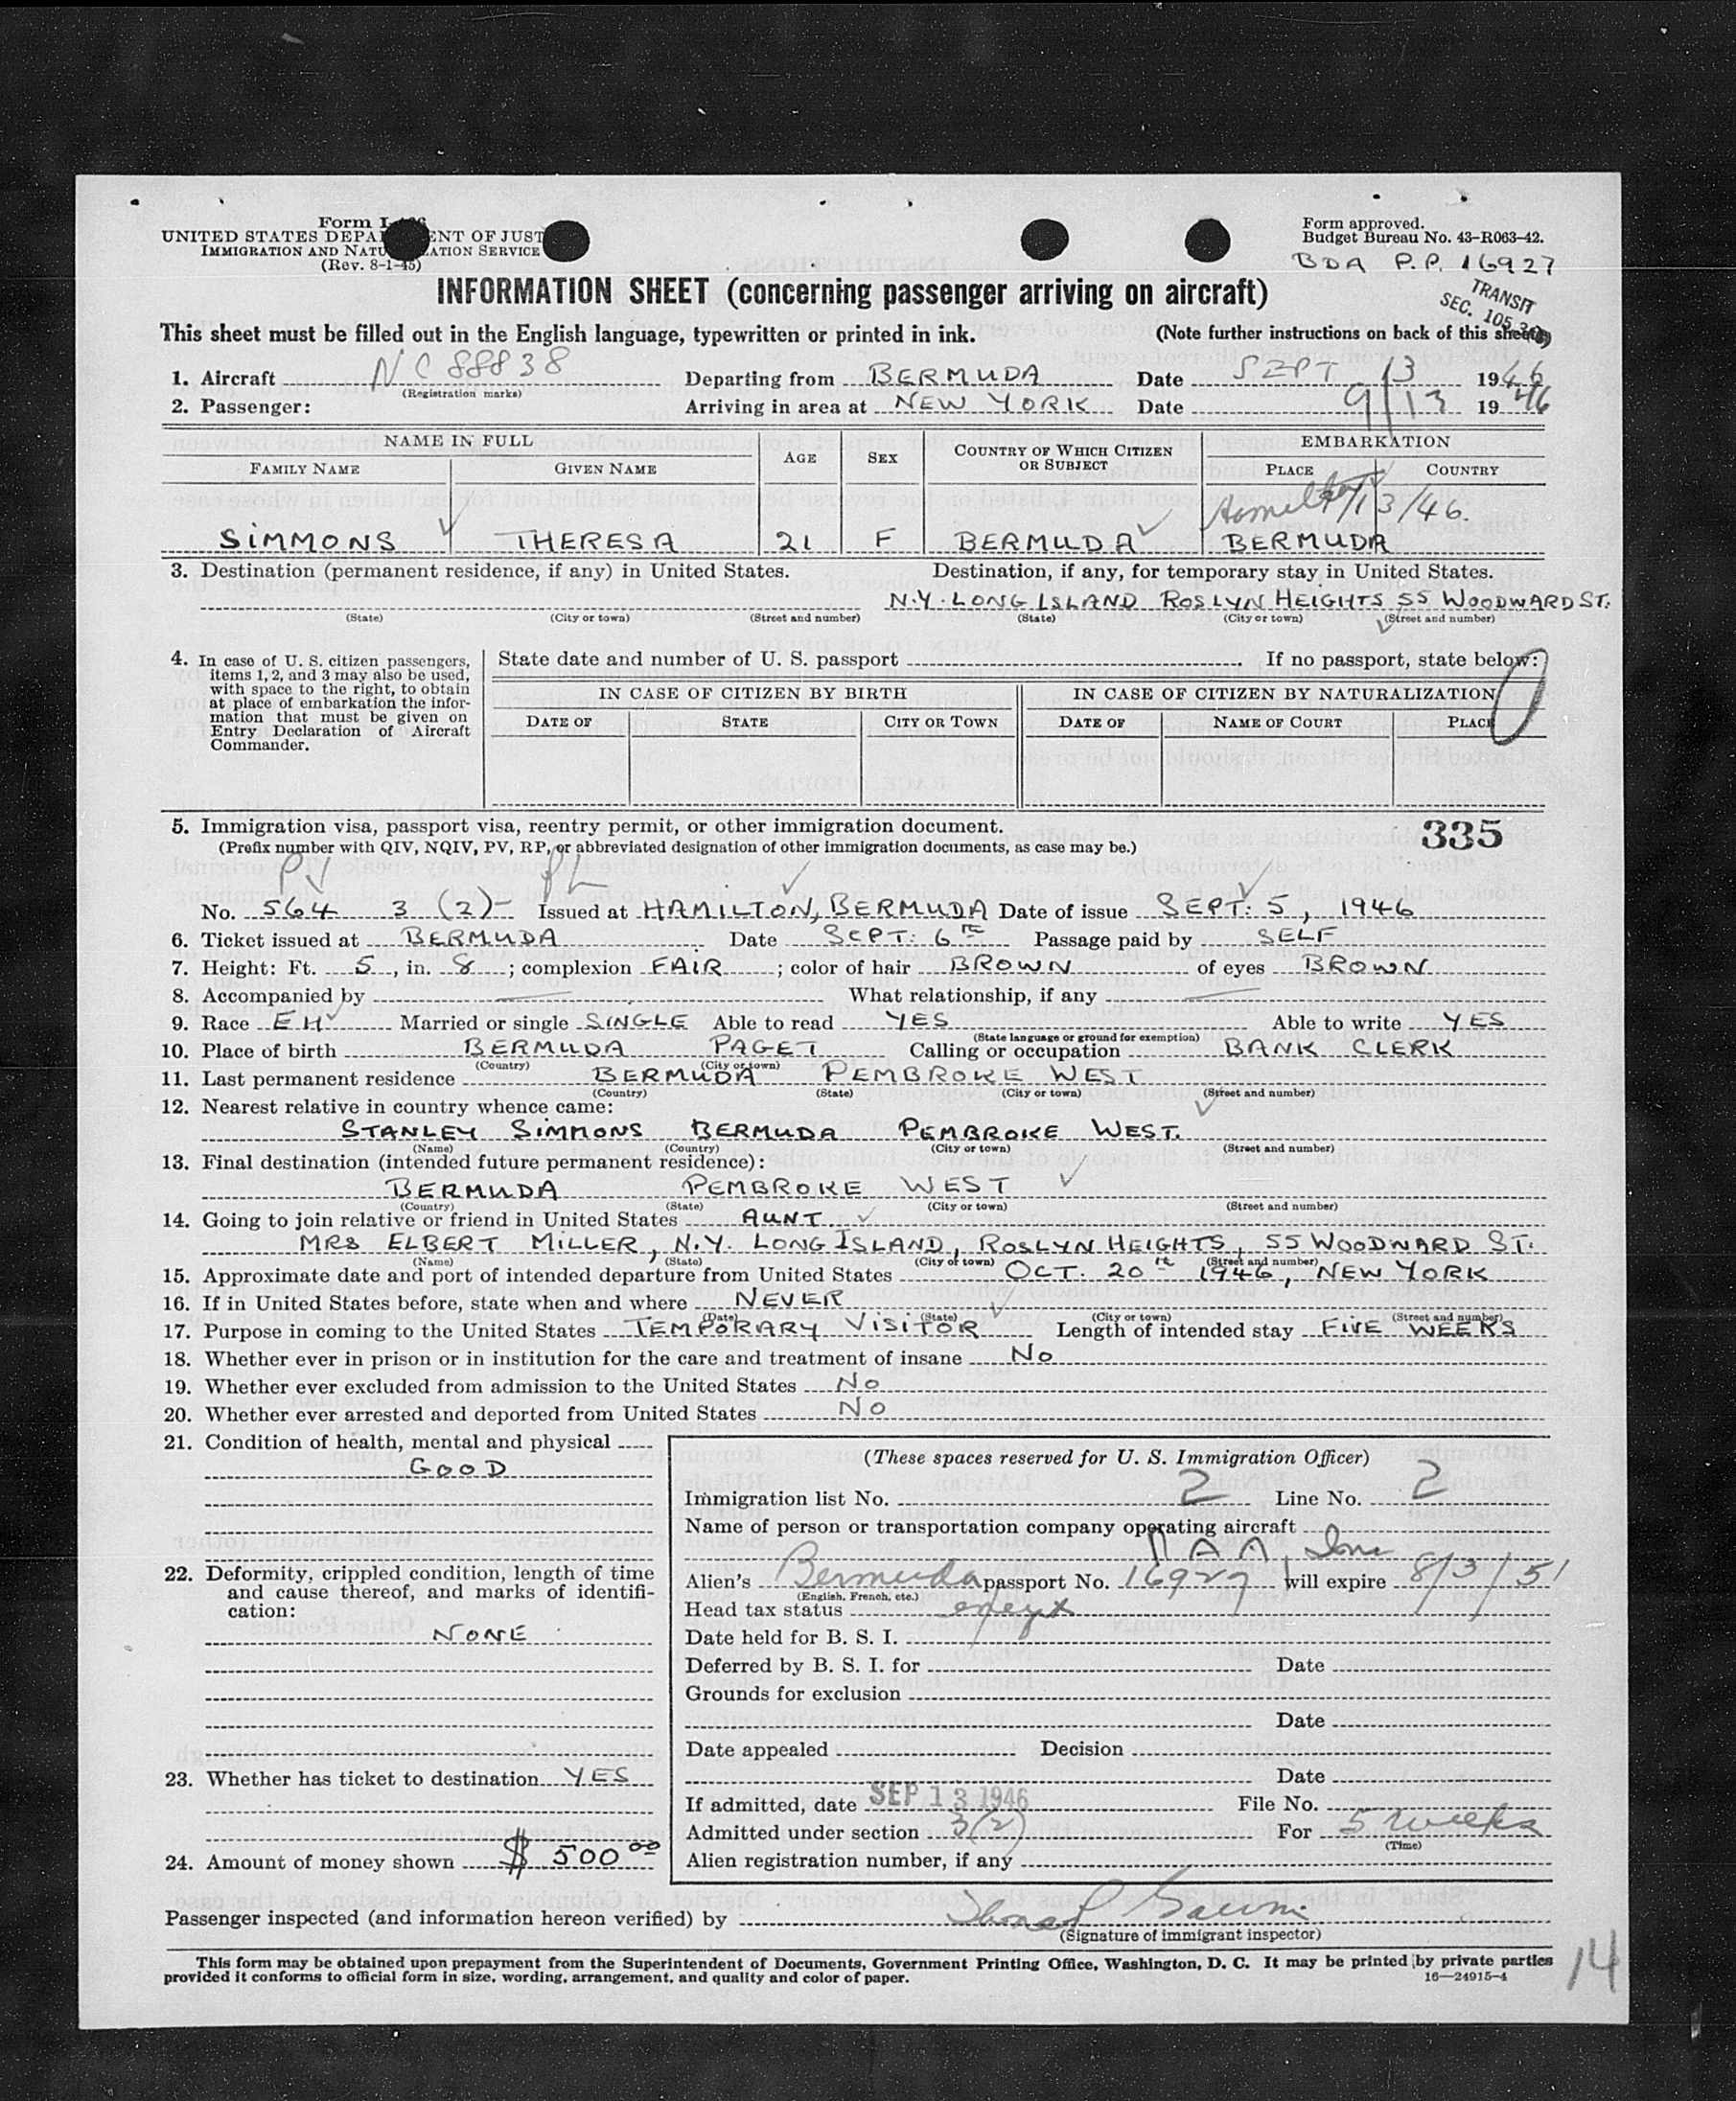 Form I-466
UNITED STATES DEPARTMENT OF JUSTICE
IMMIGRATION AND NATURALIZATION SERVICE
(Rev. 8-1-45)
Form approved.
Budget Bureau No. 43-R063-42.
BDA P.P. 16927
TRANSIT
SEC. 105.3
INFORMATION SHEET (concerning passenger arriving on aircraft)
This sheet must be filled out in the English language, typewritten or printed in ink. (Note further instructions on back of this sheet)
1. Aircraft NC 88838 Departing from BERMUDA Date SEPT 13 1946
(Registration marks)
2. Passenger: Arriving in area at NEW YORK Date 9/13 1946
NAME IN FULL AGE SEX COUNTRY OF WHICH CITIZEN OR SUBJECT EMBARKATION
FAMILY NAME GIVEN NAME PLACE COUNTRY
Hamilton 9/13/46.
SIMMONS THERESA 21 F BERMUDA BERMUDA
3. Destination (permanent residence, if any) in United States. Destination, if any, for temporary stay in United States.
N.Y. LONG ISLAND ROSLYN HEIGHTS 55 WOODWARD ST.
(State) (City or town) (Street and number) (State) (City or town) (Street and number)
4. In case of U. S. citizen passengers, items 1, 2, and 3 may also be used, with space to the right, to obtain at place of embarkation the information that must be given on Entry Declaration of Aircraft Commander.
State date and number of U. S. passport If no passport, state below:
IN CASE OF CITIZEN BY BIRTH IN CASE OF CITIZEN BY NATURALIZATION
DATE OF STATE CITY OR TOWN DATE OF NAME OF COURT PLACE
5. Immigration visa, passport visa, reentry permit, or other immigration document. 335
(Prefix number with QIV, NQIV, PV, RP, or abbreviated designation of other immigration documents, as case may be.)
PV PL
No. 564 3 (2) Issued at HAMILTON, BERMUDA Date of issue SEPT: 5, 1946
6. Ticket issued at BERMUDA Date SEPT: 6TH Passage paid by SELF
7. Height: Ft. 5, in. 8; complexion FAIR; color of hair BROWN of eyes BROWN
8. Accompanied by — What relationship, if any —
9. Race EH Married or single SINGLE Able to read YES Able to write YES
(State language or ground for exemption)
10. Place of birth BERMUDA PAGET Calling or occupation BANK CLERK
(Country) (City or town)
11. Last permanent residence BERMUDA PEMBROKE WEST
(Country) (State) (City or town) (Street and number)
12. Nearest relative in country whence came:
STANLEY SIMMONS BERMUDA PEMBROKE WEST.
(Name) (Country) (City or town) (Street and number)
13. Final destination (intended future permanent residence):
BERMUDA PEMBROKE WEST
(Country) (State) (City or town) (Street and number)
14. Going to join relative or friend in United States AUNT
MRS ELBERT MILLER, N.Y. LONG ISLAND, ROSLYN HEIGHTS, 55 WOODWARD ST.
(Name) (State) (City or town) (Street and number)
15. Approximate date and port of intended departure from United States OCT. 20th 1946, NEW YORK
16. If in United States before, state when and where NEVER
(Date) (State) (City or town) (Street and number)
17. Purpose in coming to the United States TEMPORARY VISITOR Length of intended stay FIVE WEEKS
18. Whether ever in prison or in institution for the care and treatment of insane NO
19. Whether ever excluded from admission to the United States NO
20. Whether ever arrested and deported from United States NO
21. Condition of health, mental and physical
GOOD
22. Deformity, crippled condition, length of time and cause thereof, and marks of identification:
NONE
23. Whether has ticket to destination YES
24. Amount of money shown $ 500 00
(These spaces reserved for U. S. Immigration Officer)
Immigration list No. 2 Line No. 2
Name of person or transportation company operating aircraft
PAA, Inc
Alien's Bermuda passport No. 16927 will expire 8/3/51
(English, French, etc.)
Head tax status
Date held for B. S. I.
Deferred by B. S. I. for Date
Grounds for exclusion
Date
Date appealed Decision
Date
If admitted, date SEP 13 1946 File No.
Admitted under section 3(2) For 5 weeks
(Time)
Alien registration number, if any
Passenger inspected (and information hereon verified) by
(Signature of immigrant inspector)
This form may be obtained upon prepayment from the Superintendent of Documents, Government Printing Office, Washington, D. C. It may be printed by private parties
provided it conforms to official form in size, wording, arrangement, and quality and color of paper. 16—24915-4
14